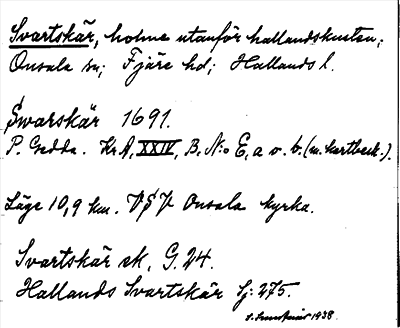 Svartskär, holme utanför hallandskusten;
Onsala sn; Fjäre hd; Hallands l.
Swarskär 1691.
P. Gedda. Kr. A, XXIV, B. N:o E, a o. b. (m. kartbeck.).
Läge 10,9 km. V§V Onsala kyrka.
Svartskär sk. G. 24.
Hallands Svartskär Sj: 275.
1938